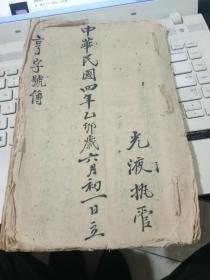 光液执管
中華民國四年乙卯歲六月初一日立
亨字號簿